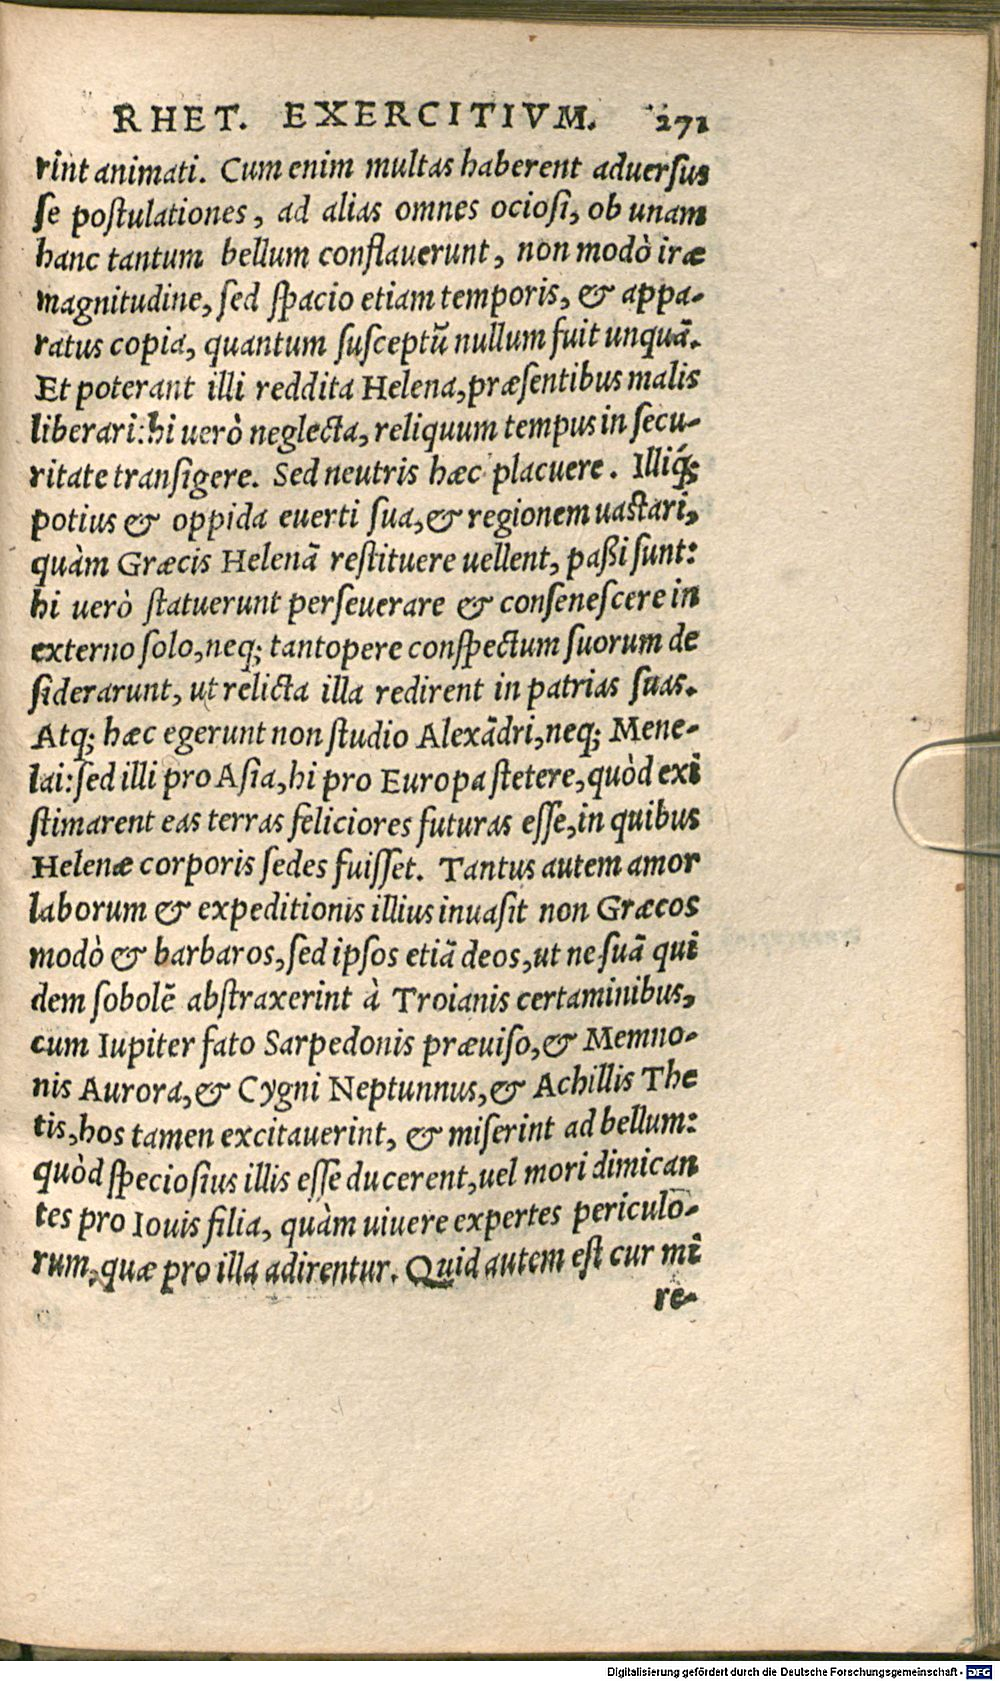 RHET. EXERCITIVM. 271
rint animati. Cum enim multas haberent aduersus
se postulationes, ad alias omnes ociosi, ob unam
hanc tantum bellum conflauerunt, non modò iræ
magnitudine, sed spacio etiam temporis, & appa-
ratus copia, quantum susceptũ nullum fuit unquã.
Et poterant illi reddita Helena, præsentibus malis
liberari: hi uerò neglecta, reliquum tempus in secu-
ritate transigere. Sed neutris hæc placuere. Illiq́;
potius & oppida euerti sua, & regionem uastari,
quàm Græcis Helenã restituere uellent, paßi sunt:
hi uerò statuerunt perseuerare & consenescere in
externo solo, neq; tantopere conspectum suorum de
siderarunt, ut relicta illa redirent in patrias suas.
Atq; hæc egerunt non studio Alexãdri, neq; Mene-
lai: sed illi pro Asia, hi pro Europa stetere, quòd exi
stimarent eas terras feliciores futuras esse, in quibus
Helenæ corporis sedes fuisset. Tantus autem amor
laborum & expeditionis illius inuasit non Græcos
modò & barbaros, sed ipsos etiã deos, ut ne suã qui
dem sobolẽ abstraxerint à Troianis certaminibus,
cum Iupiter fato Sarpedonis præuiso, & Memno-
nis Aurora, & Cygni Neptunnus, & Achillis The
tis, hos tamen excitauerint, & miserint ad bellum:
quòd speciosius illis esse ducerent, uel mori dimican
tes pro Iouis filia, quàm uiuere expertes periculo-
rum, quæ pro illa adirentur. Quid autem est cur mi
re-
Digitalisierung gefördert durch die Deutsche Forschungsgemeinschaft - DFG